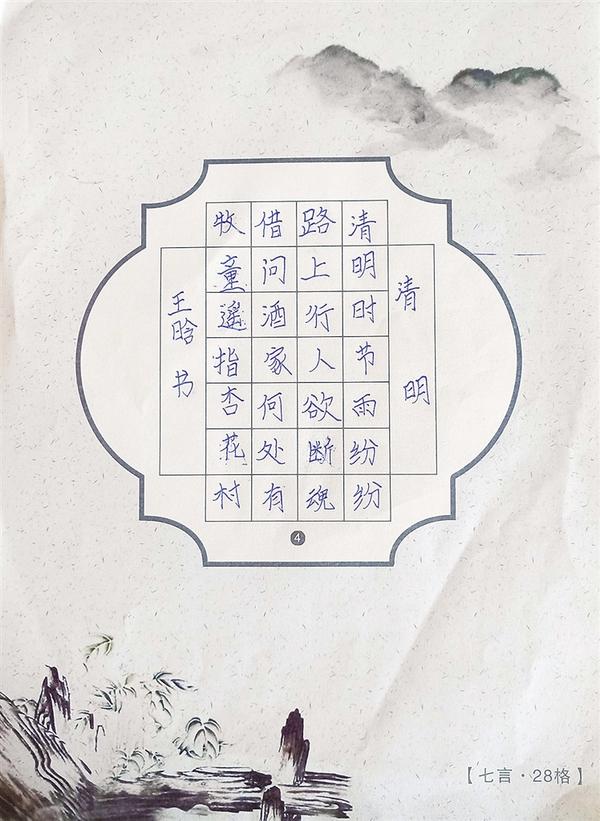 清明
清明时节雨纷纷
路上行人欲断魂
借问酒家何处有
牧童遥指杏花村
王晗书
4
【七言·28格】